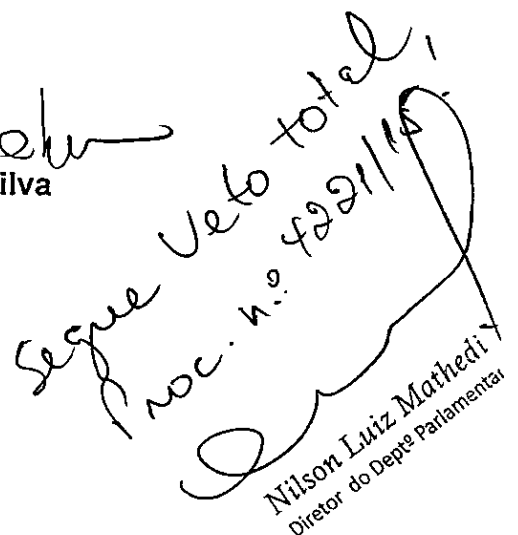 ilva
Segue Veto total,
Proc. n.º 4221/15.
Nilson Luiz Mathedi
Diretor do Deptº Parlamentar